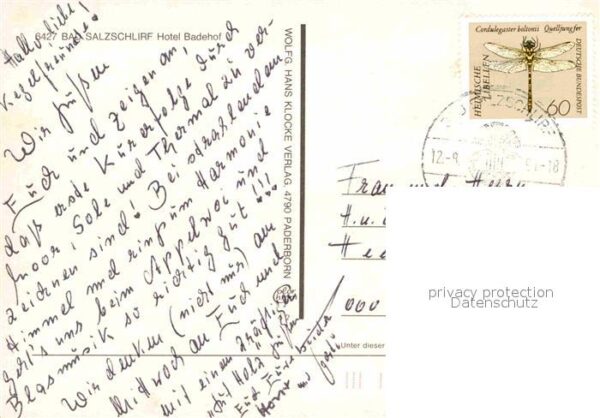 6427 BAD SALZSCHLIRF Hotel Badehof
Hallo liebe
Kegelfreunde!
Wir grüßen
Euch und zeigen an,
daß erste Kurerfolge durch
Moor, Sole und Thermal zu ver-
zeichnen sind! Bei strahlendem
Himmel und ringsum Harmonie
geht's uns beim Äppelwoi und
Blasmusik so richtig gut!!!
Wir denken (nicht nur) am
Mittwoch an Euch und
mit einem
"Gut Holz"
Euch Eure beiden
Horst und
WOLFG. HANS KLOCKE VERLAG, 4790 PADERBORN
Cordulegaster boltonii Quelljungfer
HEIMISCHE
LIBELLEN
DEUTSCHE BUNDESPOST
60
SALZSCHLIRF
12.-9. 91-18
Frau und Herrn
H. u.
000
Unter dieser
privacy protection
Datenschutz